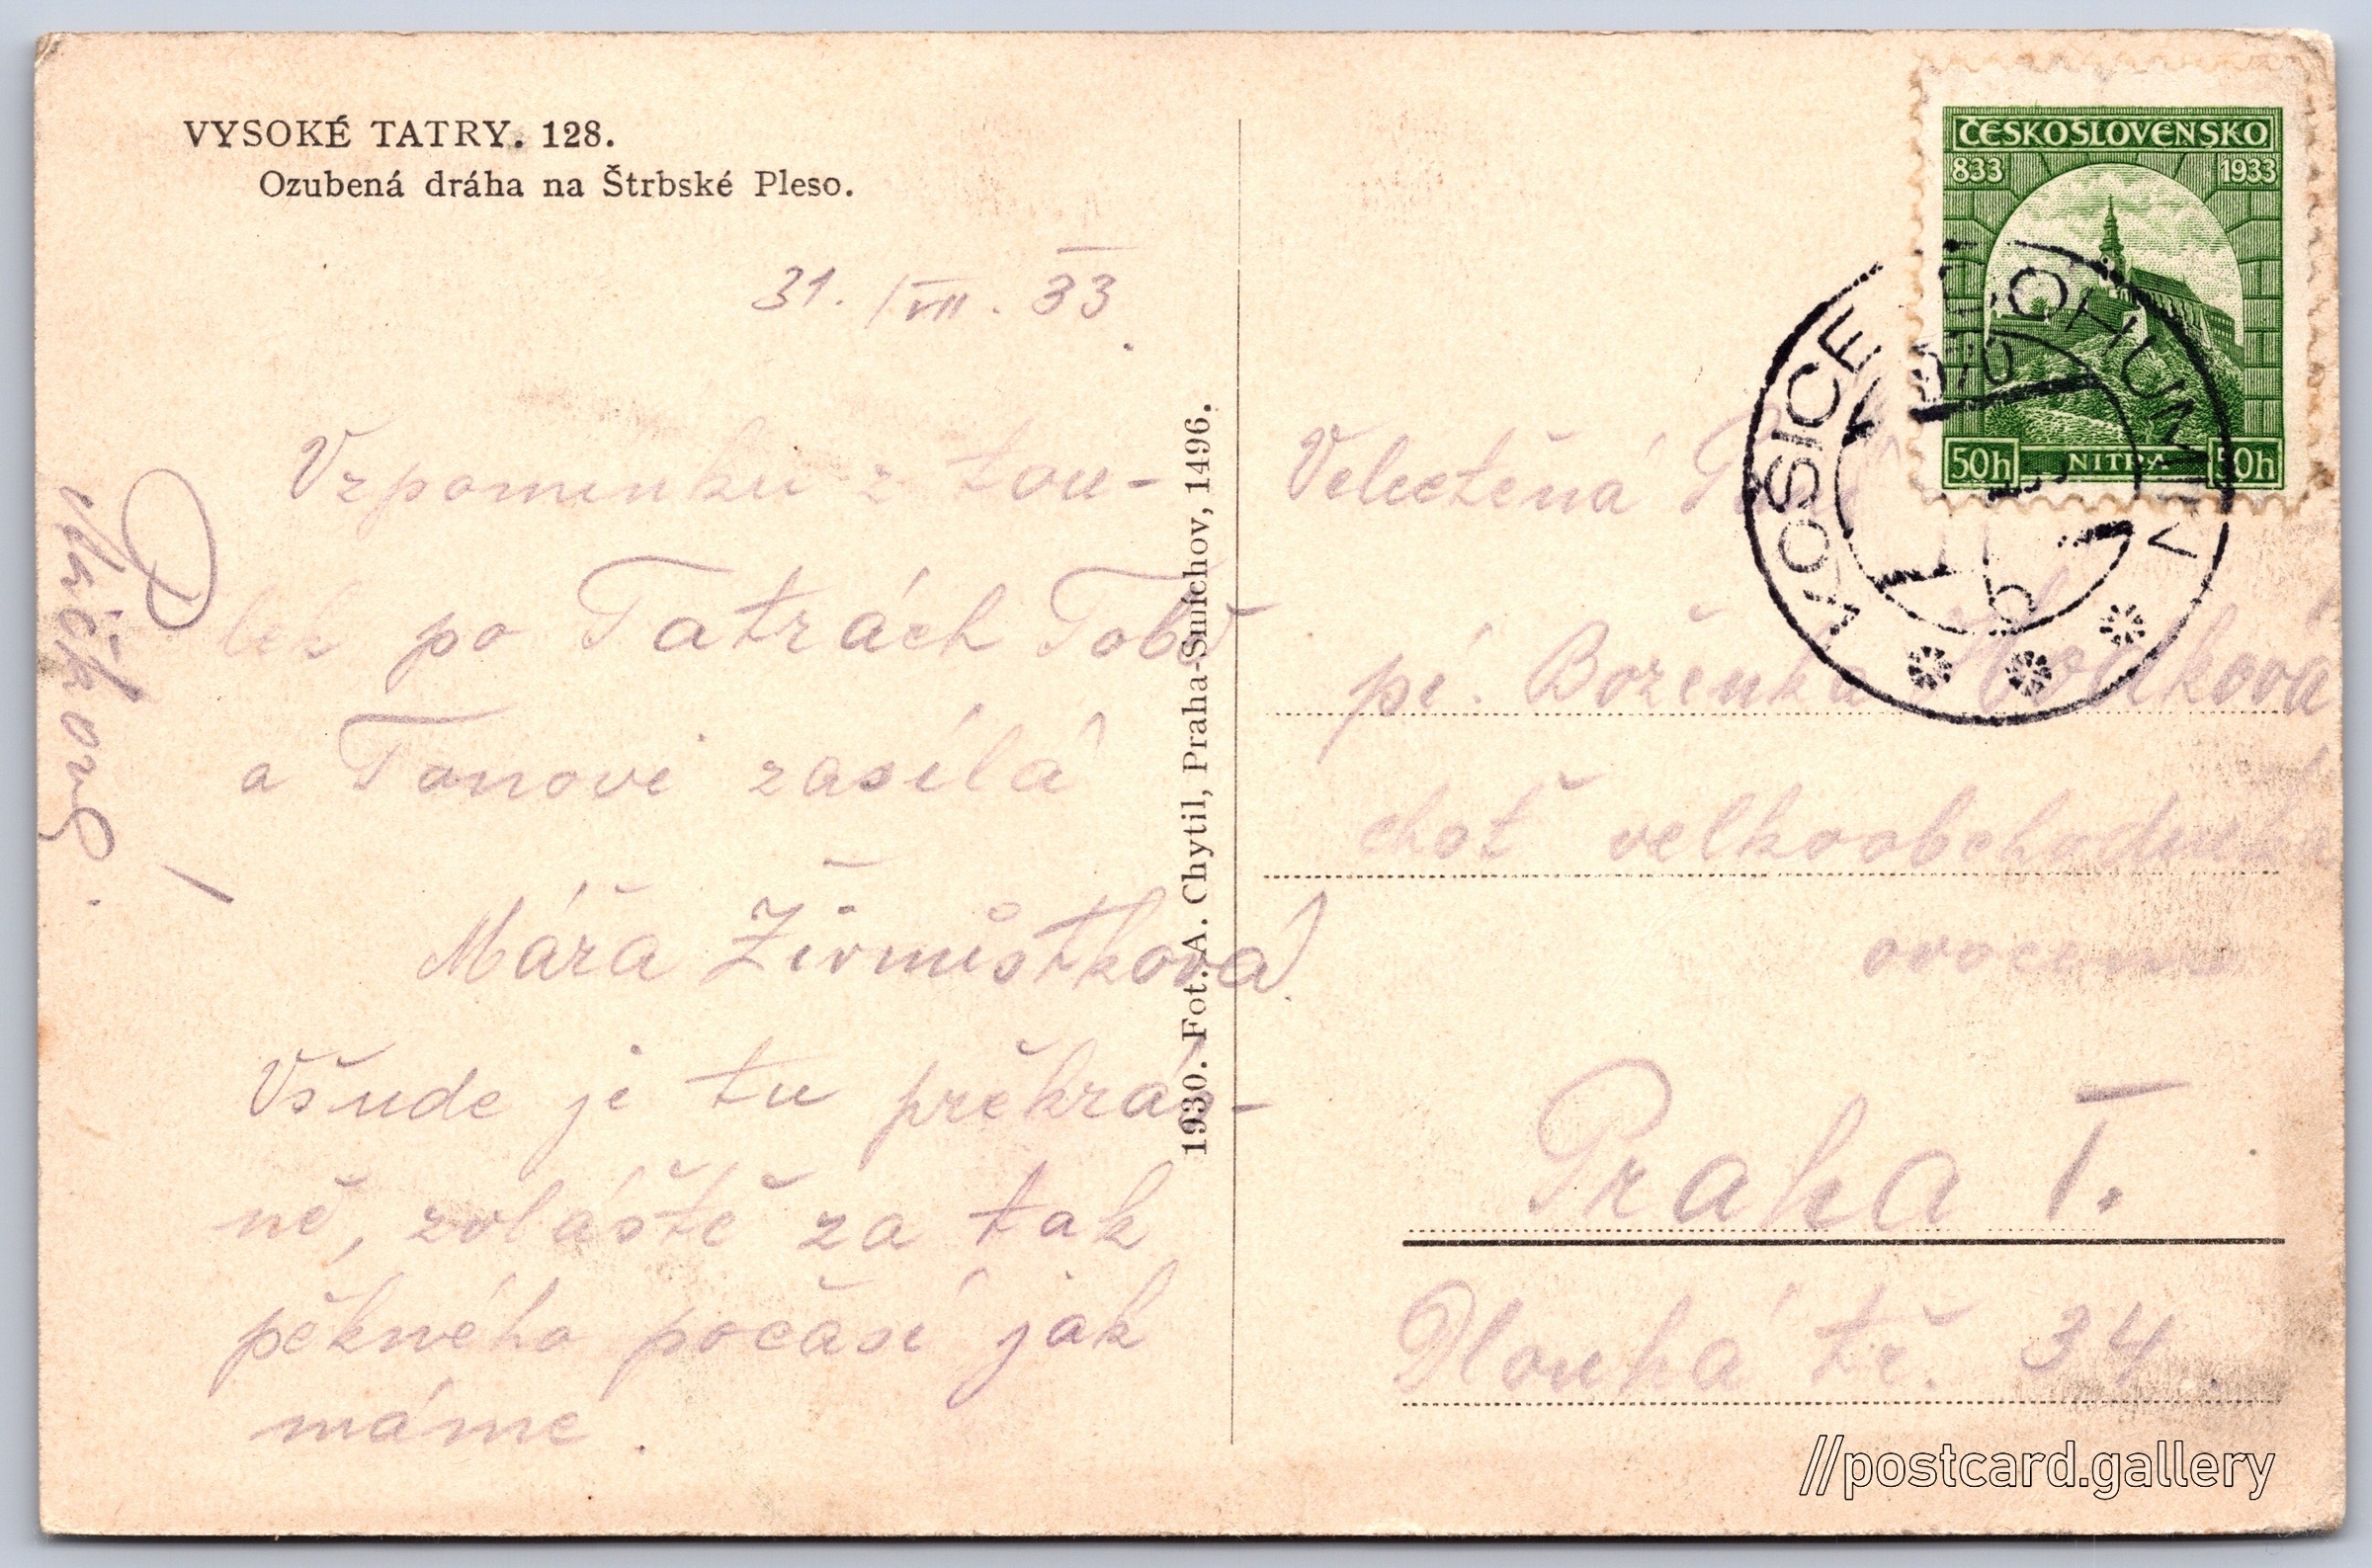 VYSOKÉ TATRY. 128.
Ozubená dráha na Štrbské Pleso.
31. /VII. 33
Vzpomínku z tou-
lek po Tatrách Tobě
a Tonovi zasílá
Máňa Živnůstková
Všude je tu překrás-
ně, zvláště za tak
pěkného počasí jak
máme.
1930. Fot. A. Chytil, Praha-Smíchov, 1496.
ČESKOSLOVENSKO
833 1933
50h NITRA 50h
KOŠICE BOHUMÍN
Veluctěná Paní
pí. Boženka
choť velkoobchodníka
ovocem
Praha I.
Dlouhá tř. 34.
//postcard.gallery